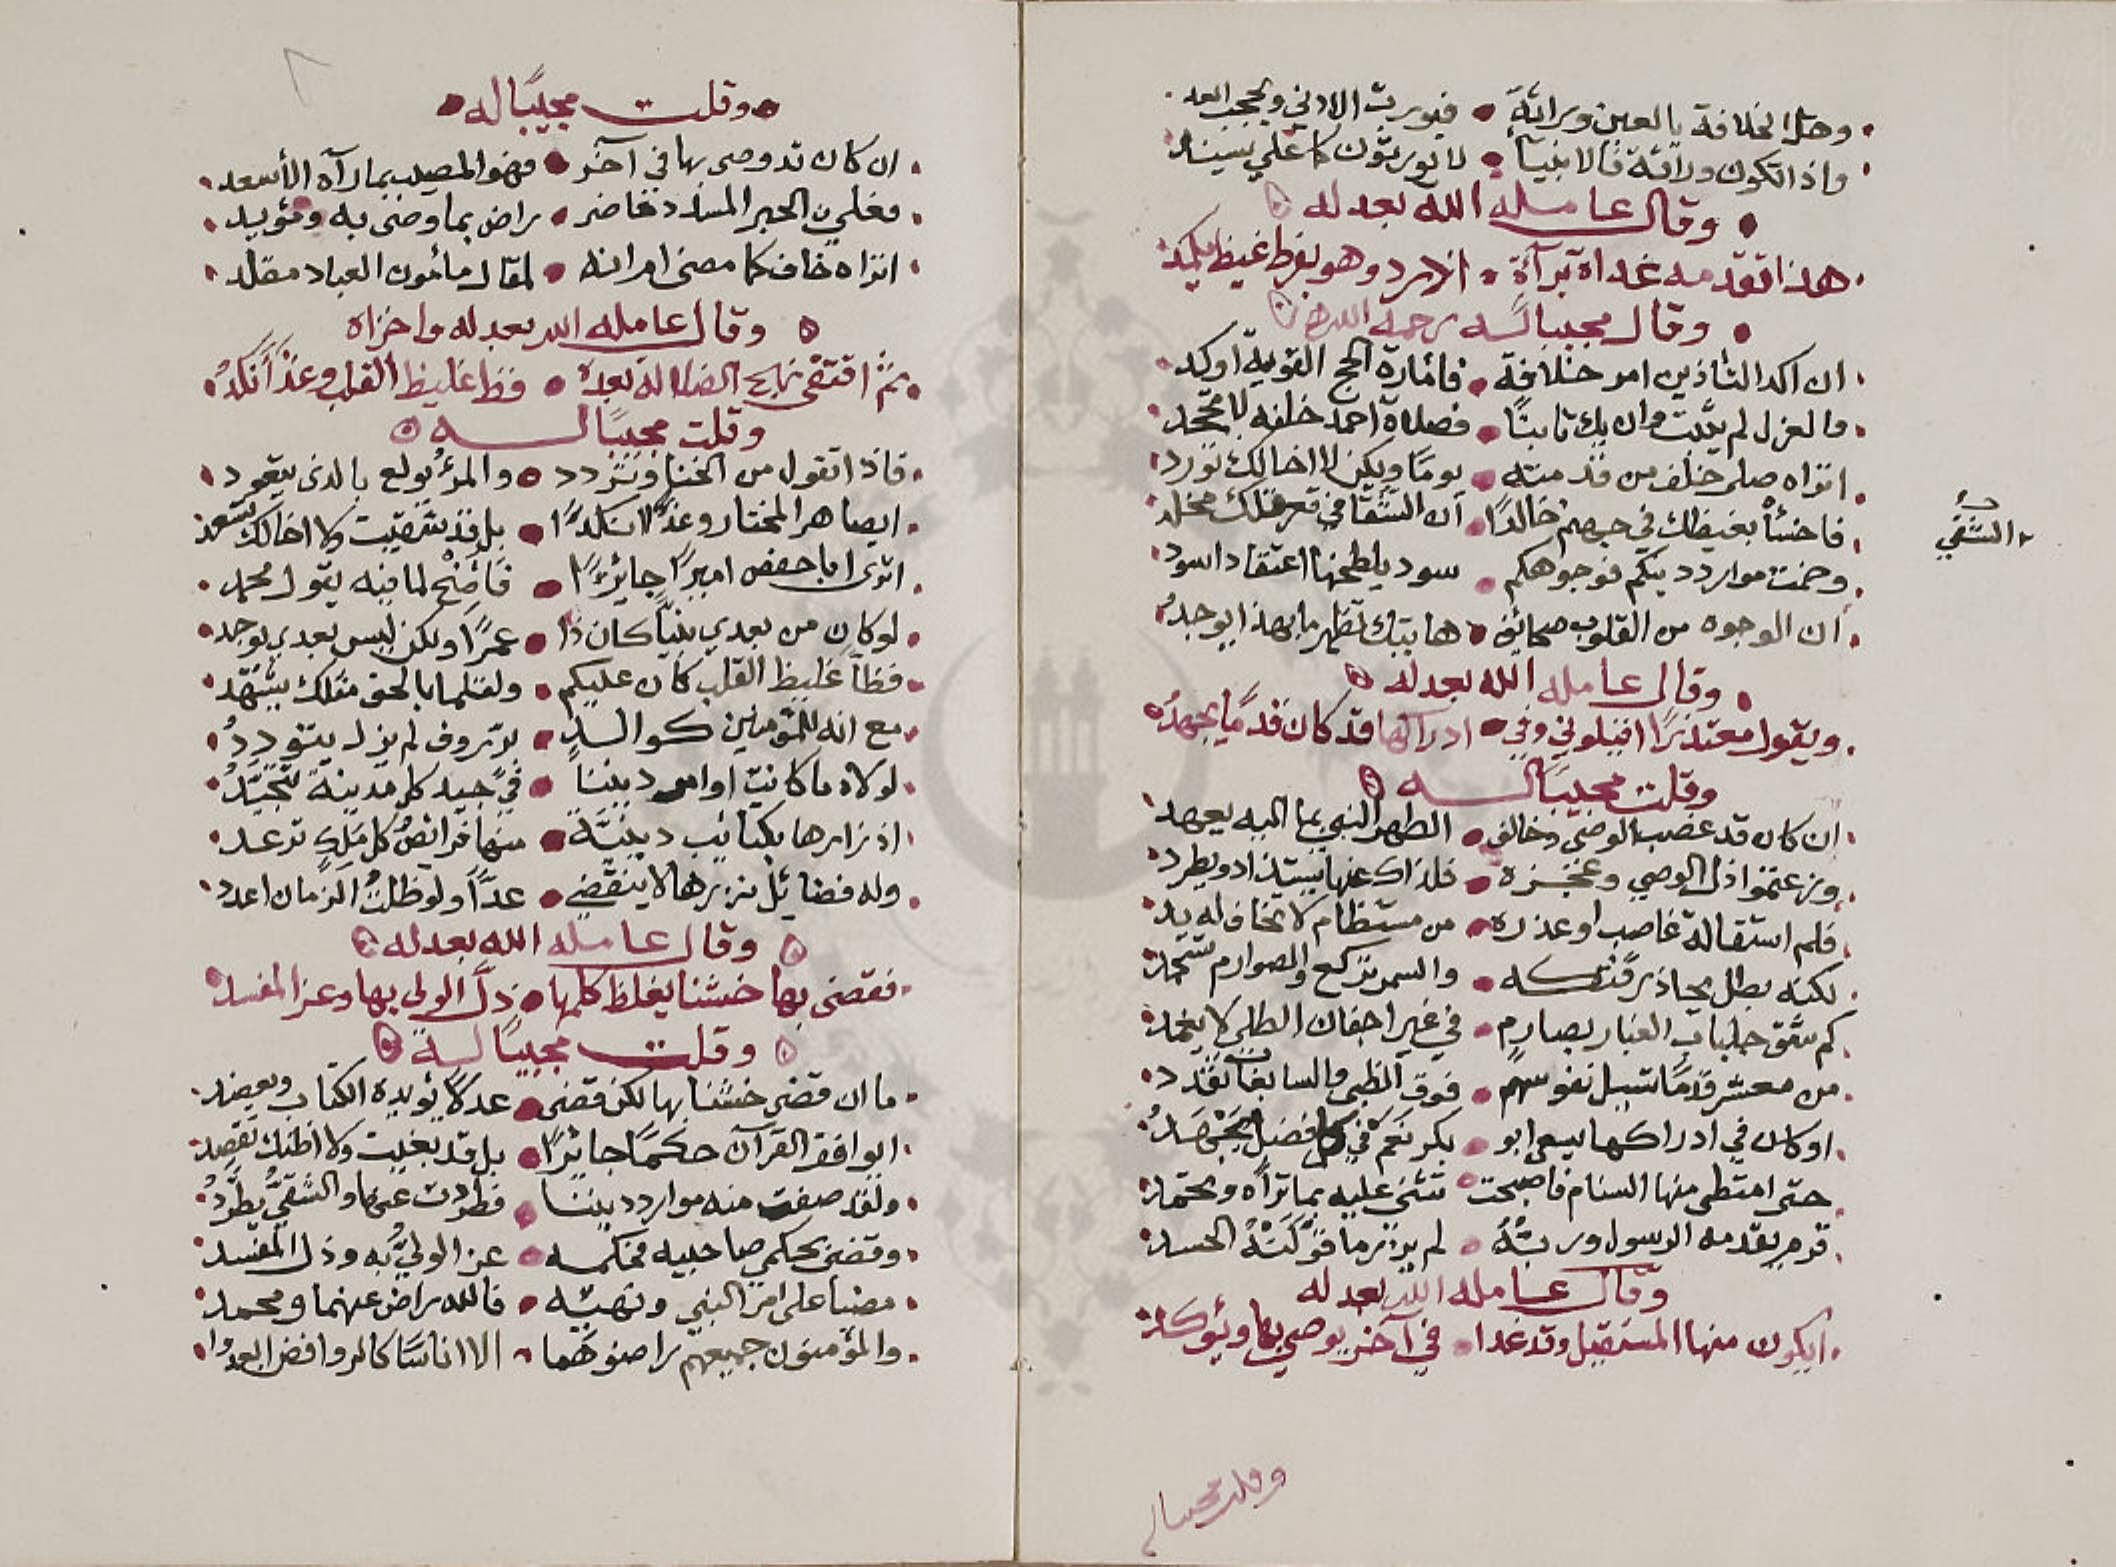 وهل الخلافة بالعين وراثة فيورث الادنى ويحجب ابعد
واذا تكون وراثة فالانبيا لا يورثون كما علي يسند
وقال عامله الله بعدله
هذا تقدمه غداة براءة اذ رد وهو بفرط غيظ يكمد
وقال مجيبا له رحمه الله
ان اكد الثاذين امر خلافة فامارة الحج القوية اوكد
والعزل لم يثبت وان يك ثابتًا فصلاة احمد خلفه لا تجحد
اتراه صلى خلف من قد منته يومًا ويكن لا اخالك تورد
فاخسأ بغيظك في جهنم خالدًا ان الشقا في قعر مخلد
السقي
وخمت موارد دينكم فوجوهكم سود يلطخها اعتقاد اسود
ان الوجوه من القلوب صحائف ها بيتك تظهر ما بهذا يوجد
وقال عامله الله بعدله
ويقول معتذرًا اقيلوني وفي ادراكها قد كان قدمًا يجهد
وقلت مجيبًا له
ان كان قد غصب الوصي وخالف الطهر النبي بما اليه يعهد
وزعمتموا ذل الوصي وعجزه فلذاك عنها يستذاد ويطرد
فلم استقالة غاصب او عذره من مستظام لا تخاف له يد
لكنه بطل يحاذر فتكه والسمر تركع والصوارم تسجد
كم شق جلباب الغبار بصارم في غير اجفان الطلى لا يغمد
من معشر قدمًا تسيل نفوسهم فوق الظبى والسابغات تقدد
او كان في ادراكها يسعى ابو بكر نعم في كل فضل يجهد
حتى امتطى منها السنام فاصبحت تثني عليه بما تراه وتحمد
قرم يقدمه الرسول ورتبة لم يزر ما فركته الحسد
وقال عامله الله بعدله
ايكون منها المستقيل وقد غدا في آخر يوصي بها ويؤكد
وقلت مجيبا له
وقلت مجيبًا له
ان كان قد وصى بها في آخر فهو المصيب بما رآه الأسعد
فعلي الحبر المسدد حاضر راض بما وصى به ومؤيد
اتراه خاف كما مضى ام انه لمقال مأمون العباد مقلد
وقال عامله الله بعدله واخزاه
ثم اقتفى نهج الضلالة بعده فظ غليظ القلب وغد أنكد
وقلت مجيبًا له
فاذا تقول من الخنا وتردد والمرء يولع بالذي يتعود
ايصاهر المختار وغدًا انكدًا بل قد شقيت ولا اخالك تسعد
اترى ابا حفص اميرًا جائرًا فأصخ لما فيه يقول محمد
لو كان من بعدي نبيًا كان ذا عمرًا ولكن ليس بعدي يوجد
فظاً غليظ القلب كان عليكم ولقلما بالحق مثلك يشهد
مع انه للمؤمنين كوالد برّ رؤف لم يزل يتودد
لولاه ما كانت اوامر ديننا في جيد كل مدينة تتجيد
اذ زارها بكتائب دينيّة منها فرائص كل مَلِكٍ ترعد
وله فضائل نزرها لا ينقضي عدًّا ولو ظلت الزمان اعدد
وقال عامله الله بعدله
فقضى بها خشنا يغلظ كلمها ذلّ الولي بها وعز المفسد
وقلت مجيبًا له
ما ان قضى خشنا بها لكن قضى عدلاً يؤيده الكتاب ويعضد
ايوافق القرآن حكمًا جائرًا بل قد بغيت ولا اظنك تقصد
ولقد صفت منه موارد ديننا فطردت عنها والشقيُّ يطرّد
وقضى بحكم صاحبيه محكمه عز الوليّ به وذل المفسد
مضيا على امر النبي ونهيه فالله راض عنهما ومحمد
والمؤمنون جميعهم راضوهما الا اناسًا كالروافض ابعدوا